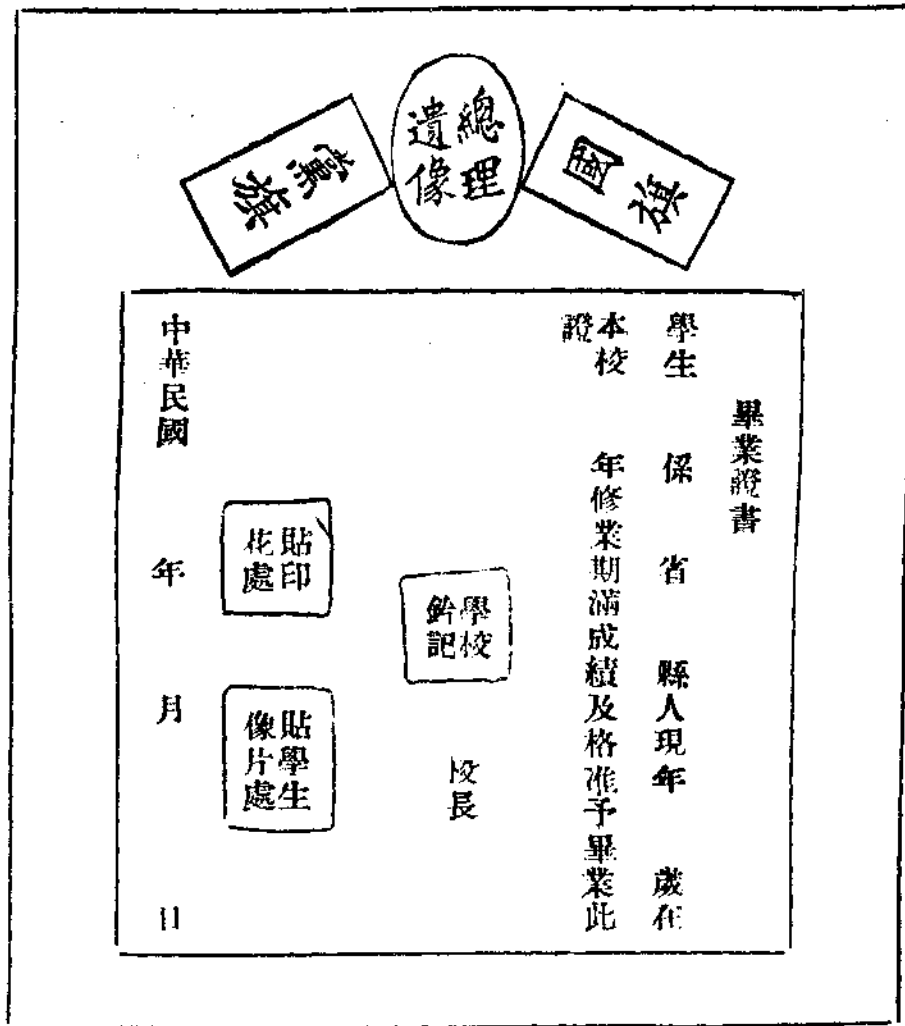 國旗
總理
遺像
黨旗
畢業證書
學生 係 省 縣人現年 歲在
本校 年修業期滿成績及格准予畢業此
證
校長
學校
鈐記
貼印
花處
貼學生
像片處
中華民國 年 月 日